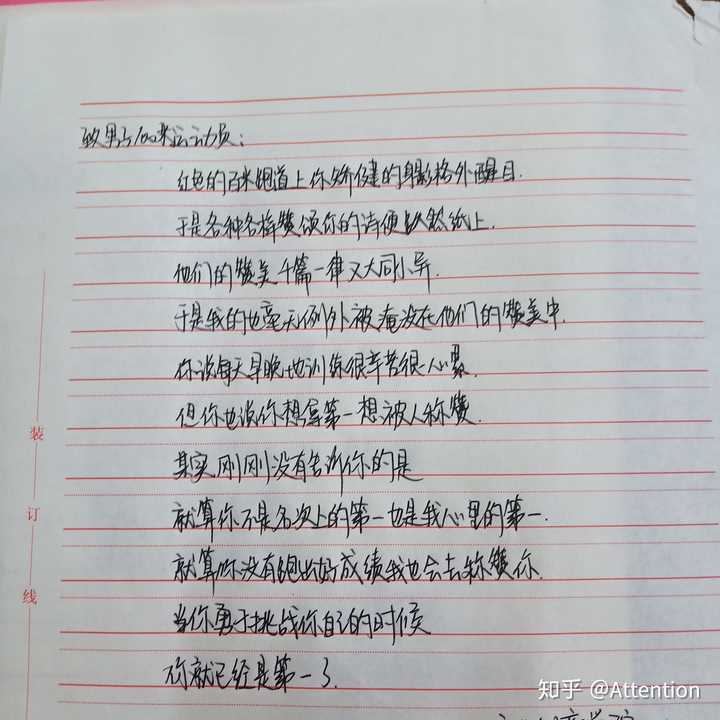 致男子100米运动员：
红色的百米跑道上你矫健的身影格外醒目.
于是各种各样赞颂你的诗便跃然纸上.
他们的赞美千篇一律又大同小异.
于是我的也毫无例外被淹没在他们的赞美中.
你说每天早晚地训练很辛苦很人累.
但你也说你想拿第一想被人称赞.
其实刚刚没有告诉你的是
就算你不是名次上的第一也是我心里的第一.
就算你没有跑出好成绩我也会去称赞你.
当你勇于挑战你自己的时候
你就已经是第一了.
装
订
线
知乎 @Attention